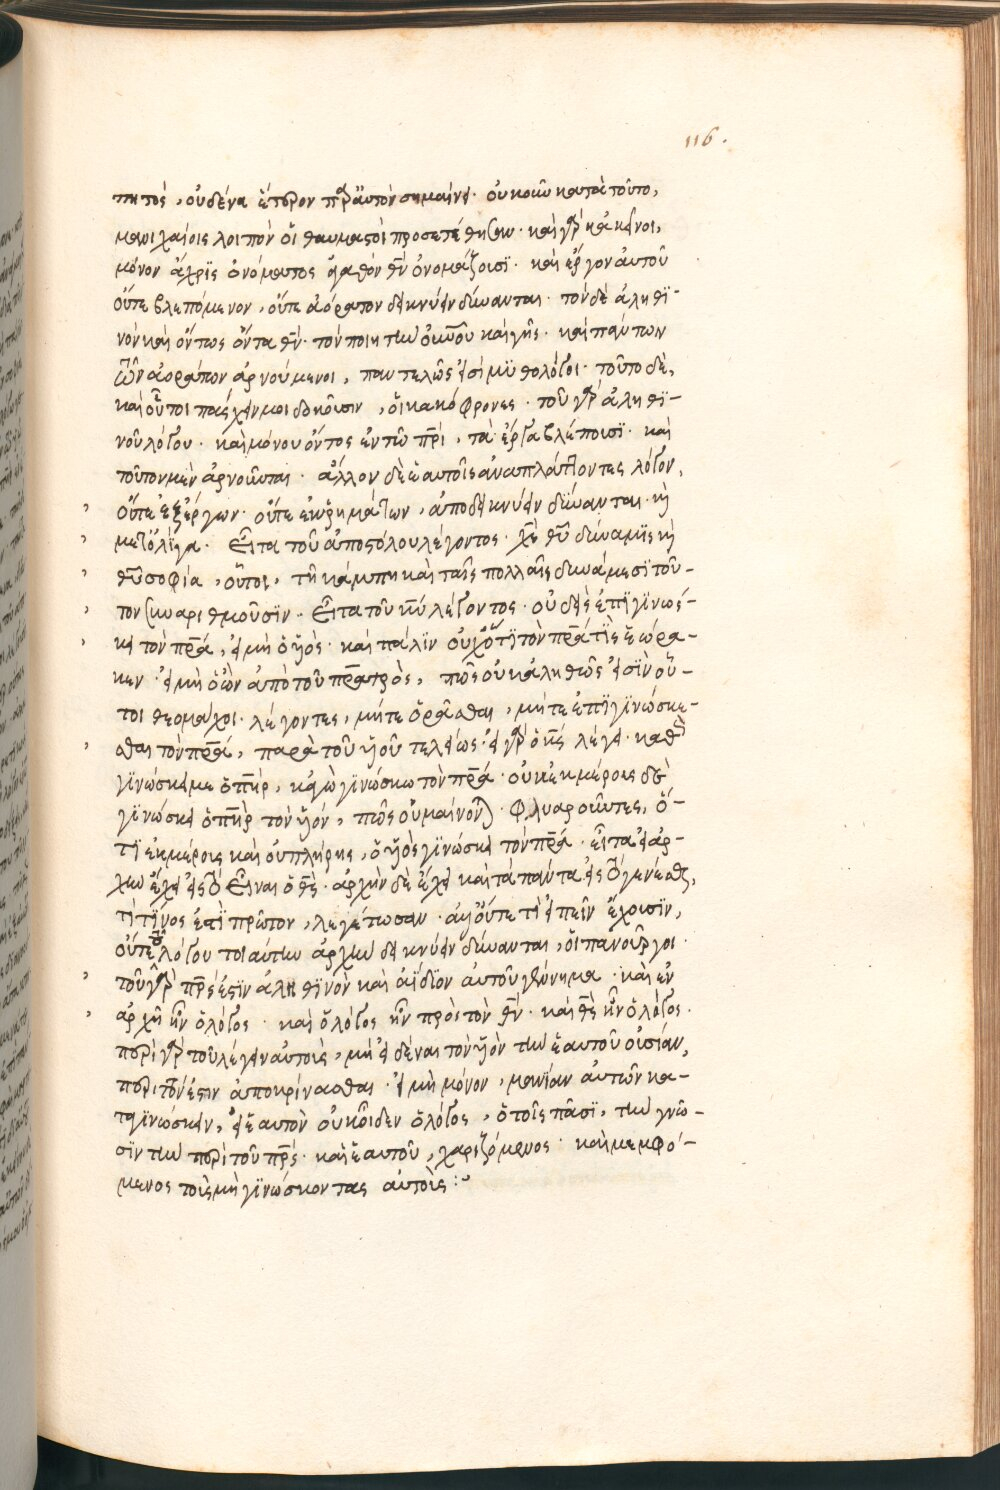 116.
πητὸς, οὐδένα ἕτερον παρ' αὐτὸν σημαίνει. οὐκοῦν κατὰ τοῦτο,
μανιχαίοις λοιπὸν οἱ θαυμαστοὶ προσετέθησαν. καὶ γὰρ κἀκεῖνοι,
μόνον ἄχρϊς ὀνόματος ἀγαθὸν θν̅ ὀνομάζουσϊ. καὶ ἔργον αὐτοῦ
οὔτε βλεπόμενον, οὔτε ἀόρατον δεικνύειν δύνανται. τὸν δὲ ἀληθϊ-
νὸν καὶ ὄντως ὄντα θν̅. τὸν ποιητὴν οὐν̅οῦ καὶ γῆς. καὶ πάντων
τῶν ἀοράτων ἀρνούμενοι, παντελῶς εἰσὶ μϋθολόγοι. τοῦτο δὲ,
καὶ οὗτοι πάσχειν μοι δοκοῦσιν, οἱ κακόφρονες. τοῦ γὰρ ἀληθϊ-
νοῦ λόγου. καὶ μόνου ὄντος ἐν τῷ πρ̅ι, τὰ ἔργα βλέπουσϊ. καὶ
τοῦτον μὲν ἀρνοῦνται. ἄλλον δὲ ἑαυτοῖς ἀναπλάττοντες λόγον,
οὔτε ἐξ ἔργων. οὔτε ἐκ ῥημάτων, ἀποδεικνύειν δύνανται. καὶ
μετ' ὀλίγα. εἶτα τοῦ ἀποστόλου λέγοντος. χς̅ θυ̅ δύναμϊς καὶ
θυ̅ σοφία, οὗτοι, τῇ κάμπῃ καὶ ταῖς πολλαῖς δυνάμεσϊ τοῦ-
τον συναριθμοῦσϊν. εἶτα τοῦ κυ̅ λέγοντος. οὐδεὶς ἐπϊγϊνώσ-
κει τὸν πρ̅α, εἰ μὴ ὁ υἱὸς. καὶ πάλϊν οὐχ ὅτϊ τὸν πρ̅α τϊς ἑώρα-
κεν. εἰ μὴ ὁ ὢν ἀπὸ τοῦ πατρὸς, πῶς οὐκ ἀληθῶς εἰσϊν οὗ-
τοι θεομάχοι. λέγοντες, μήτε ὁρᾶσθαι, μήτε ἐπϊγϊνώσκε-
σθαι τὸν πρ̅α, παρὰ τοῦ υἱοῦ τελείως. εἰ γὰρ ὁ κς̅ λέγει. καθὼς
γϊνώσκει με ὁ πη̅ρ, κἀγὼ γϊνώσκω τὸν πρ̅α. οὐκ ἐκ μέρους δὲ
γϊνώσκει ὁ πη̅ρ τὸν υἱὸν, πῶς οὐ μαίνονται φλυαροῦντες, ὅ-
τϊ ἐκ μέρους καὶ οὐ πλήρης, ὁ υἱὸς γϊνώσκει τὸν πρ̅α. εἶτα εἰ ἀρ-
χὴν ἔχει εἰς τὸ εἶναι ὁ θς̅. ἀρχὴν δὲ ἔχει καὶ τὰ πάντα εἰς τὸ γενέσθαι,
τὶ τϊνος ἐστὶ πρῶτον, λεγέτωσαν. ἀλλ' οὔτε τὶ εἰπεῖν ἔχουσϊν,
οὔτε τοῦ λόγου τοιαύτην ἀρχὴν δεικνύειν δύνανται, οἱ πανοῦργοι.
τοῦ γὰρ πρ̅ς ἐστϊν ἀληθϊνὸν καὶ ἀΐδϊον αὐτοῦ γέννημα. καὶ ἐν
ἀρχῇ ἦν ὁ λόγος. καὶ ὁ λόγος ἦν πρὸς τὸν θν̅. καὶ θς̅ ἦν ὁ λόγος.
περὶ γὰρ τοῦ λέγειν αὐτοὺς, μὴ εἰδέναι τὸν υἱὸν τὴν ἑαυτοῦ οὐσίαν,
περιττόν ἐστιν ἀποκρίνασθαι. εἰ μὴ μόνον, μανίαν αὐτῶν κα-
ταγϊνώσκειν, εἰ ἑαυτὸν οὐκ οἶδεν ὁ λόγος, ὁ τοῖς πᾶσϊ, τὴν γνῶ-
σϊν τὴν περὶ τοῦ πρ̅ς. καὶ ἑαυτοῦ, χαριζόμενος. καὶ μεμφό-
μενος τοὺς μὴ γϊνώσκοντας αὐτοὺς :~